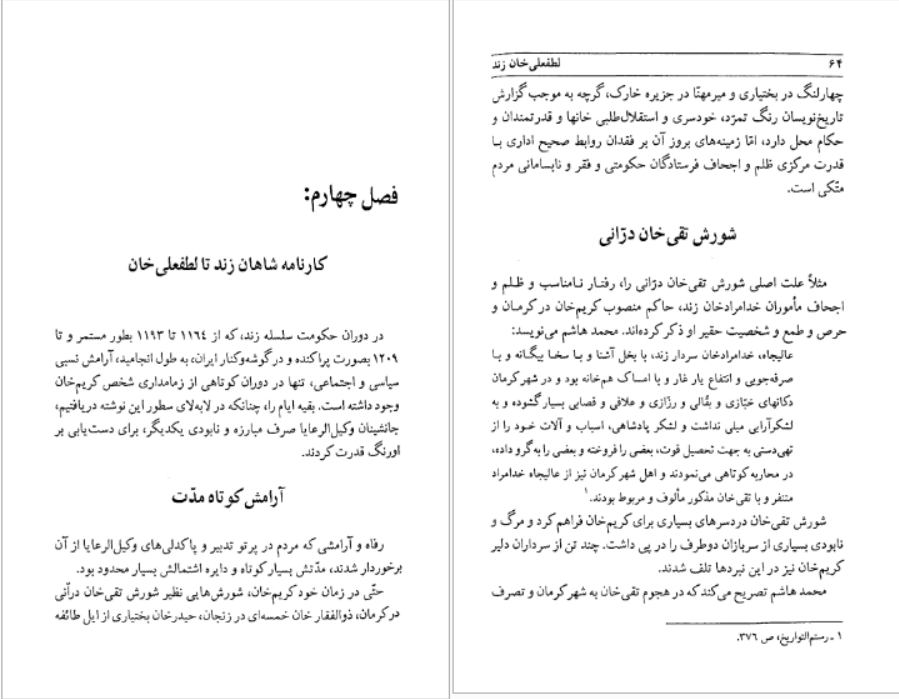 فصل چهارم:
کارنامه شاهان زند تا لطفعلی‌خان
در دوران حکومت سلسله زند، که از ۱۱٦٤ تا ۱۱۹۳ بطور مستمر و تا
۱۲۰۹ بصورت پراکنده و در گوشه‌وکنار ایران، به طول انجامید، آرامش نسبی
سیاسی و اجتماعی، تنها در دوران کوتاهی از زمامداری شخص کریم‌خان
وجود داشته است. بقیه ایام را، چنانکه در لابه‌لای سطور این نوشته دریافتیم،
جانشینان وکیل‌الرعایا صرف مبارزه و نابودی یکدیگر، برای دست‌یابی بر
اورنگ قدرت کردند.
آرامش کوتاه مدّت
رفاه و آرامشی که مردم در پرتو تدبیر و پاکدلی‌های وکیل‌الرعایا از آن
برخوردار شدند، مدّتش بسیار کوتاه و دایره اشتمالش بسیار محدود بود.
حتّی در زمان خود کریم‌خان، شورش‌هایی نظیر شورش تقی‌خان درآنی
در کرمان، ذوالفقار خان خمسه‌ای در زنجان، حیدرخان بختیاری از ایل طائفه
٦٤
لطفعلی‌خان زند
چهارلنگ در بختیاری و میرمهنّا در جزیره خارک، گرچه به موجب گزارش
تاریخ‌نویسان رنگ تمرّد، خودسری و استقلال‌طلبی خانها و قدرتمندان و
حکام محل دارد، امّا زمینه‌های بروز آن بر فقدان روابط صحیح اداری بـا
قدرت مرکزی ظلم و اجحاف فرستادگان حکومتی و فقر و نابسامانی مردم
متّکی است.
شورش تقی‌خان درّانی
مثلاً علت اصلی شورش تقی‌خان درّانی را، رفتـار نـامناسب و ظـلم و
اجحاف مأموران خدامرادخان زند، حاکم منصوب کریم‌خان در کرمان و
حرص و طمع و شخصیت حقیر او ذکر کرده‌اند. محمد هاشم می‌نویسد:
عالیجاه، خدامرادخان سردار زند، با بخل آشنا و بـا سخا بیگانه و بـا
صرفه‌جویی و انتفاع یار غار و با امساک هم‌خانه بود و در شهر کرمان
دکانهای خبّازی و بقّالی و رزّازی و علافی و قصابی بسیار گشوده و به
لشکرآرایی میلی نداشت و لشکر پادشاهی، اسباب و آلات خـود را از
تهی‌دستی به جهت تحصیل قوت، بعضی را فروخته و بعضی را به گرو داده،
در محاربه کوتاهی می‌نمودند و اهل شهر کرمان نیز از عالیجاه خدامراد
متنفر و با تقی‌خان مذکور مألوف و مربوط بودند.۱
شورش تقی‌خان دردسرهای بسیاری برای کریم‌خان فراهم کرد و مرگ و
نابودی بسیاری از سربازان دوطرف را در پی داشت. چند تن از سرداران دلیر
کریم‌خان نیز در این نبردها تلف شدند.
محمد هاشم تصریح می‌کند که در هجوم تقی‌خان به شهر کرمان و تصرف
۱ ـ رستم‌التواریخ، ص ۳۷٦.